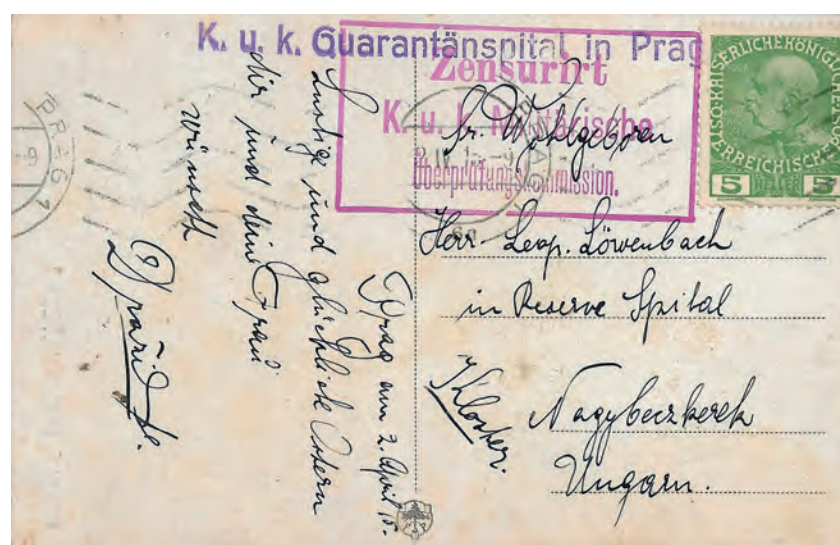 K. u. k. Quarantänspital in Prag
Zensurirt
K. u. k. Militärische
Überprüfungskommission.
PRAG 1
PRAG
5 5
Wohlgeboren
Herr Leop. Löwenbach
in Reserve Spital
Kloster.
Nagybeczkerek
Ungarn.
Prag am 2. April 15.
Lustige und glückliche Ostern
dir und deine Frau
wünscht